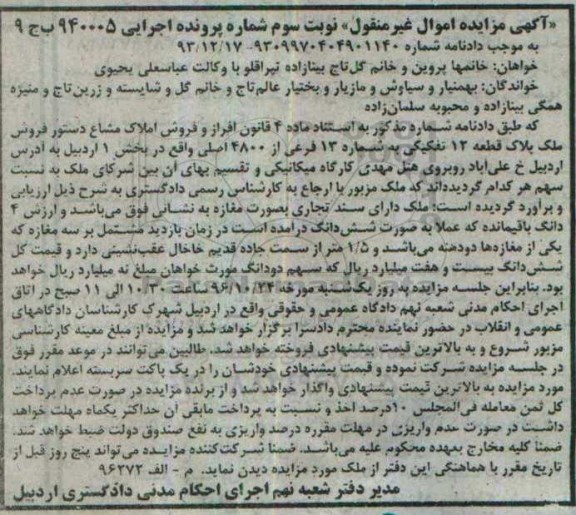 «آگهی مزایده اموال غیرمنقول» نوبت سوم شماره پرونده اجرایی ۹۴۰۰۰۵ ب ج ۹
به موجب دادنامه شماره ۹۳۰۹۹۷۰۴۰۴۹۰۱۱۴۰- ۹۳/۱۲/۱۷
خواهان: خانمها پروین و خانم گل‌تاج بینازاده تیراقلو با وکالت عباسعلی یحیوی
خواندگان: بهمنیار و سیاوش و مازیار و بختیار عالم‌تاج و خانم گل و شایسته و زرین‌تاج و منیژه
همگی بینازاده و محبوبه سلمان‌زاده
که طبق دادنامه شماره مذکور به استناد ماده ۴ قانون افراز و فروش املاک مشاع دستور فروش
ملک پلاک قطعه ۱۲ تفکیکی به شماره ۱۳ فرعی از ۴۸۰۰ اصلی واقع در بخش ۱ اردبیل به آدرس
اردبیل خ علی‌آباد روبروی هتل مهدی کارگاه میکانیکی و تقسیم بهای آن بین شرکای ملک به نسبت
سهم هر کدام گردیده‌اند که ملک مزبور با ارجاع به کارشناسی رسمی دادگستری به شرح ذیل ارزیابی
و برآورد گردیده است: ملک دارای سند تجاری بصورت مغازه به نشانی فوق می‌باشد و ارزش ۴
دانگ باقیمانده که عملا به صورت شش‌دانگ درآمده است در زمان بازدید مشتمل بر سه مغازه که
یکی از مغازه‌ها دودهنه می‌باشد و ۱/۵ متر از سمت جاده قدیم خلخال عقب‌نشینی دارد و قیمت کل
شش‌دانگ بیست و هفت میلیارد ریال که سهم دودانگ مورث خواهان مبلغ نه میلیارد ریال خواهد
بود. بنابراین جلسه مزایده به روز یک‌شنبه مورخه ۹۶/۱۰/۲۴ ساعت ۱۰/۳۰ الی ۱۱ صبح در اتاق
اجرای احکام مدنی شعبه نهم دادگاه عمومی و حقوقی واقع در اردبیل شهرک کارشناسان دادگاههای
عمومی و انقلاب در حضور نماینده محترم دادسرا برگزار خواهد شد و مزایده از مبلغ معینه کارشناسی
مزبور شروع و به بالاترین قیمت پیشنهادی فروخته خواهد شد. طالبین می‌توانند در موعد مقرر فوق
در جلسه مزایده شرکت نموده و قیمت پیشنهادی خودشان را در یک پاکت سربسته اعلام نمایند.
مورد مزایده به بالاترین قیمت پیشنهادی واگذار خواهد شد و از برنده مزایده در صورت عدم پرداخت
کل ثمن معامله فی‌المجلس ۱۰درصد اخذ و نسبت به پرداخت مابقی آن حداکثر یکماه مهلت خواهد
داشت در صورت عدم واریزی در مهلت مقرره درصد واریزی به نفع صندوق دولت ضبط خواهد شد.
ضمنا کلیه مخارج بعهده محکوم علیه می‌باشد. ضمنا شرکت‌کننده مزایده می‌تواند پنج روز قبل از
تاریخ مقرر با هماهنگی این دفتر از ملک مورد مزایده دیدن نماید. م - الف ۹۶۲۷۳
مدیر دفتر شعبه نهم اجرای احکام مدنی دادگستری اردبیل